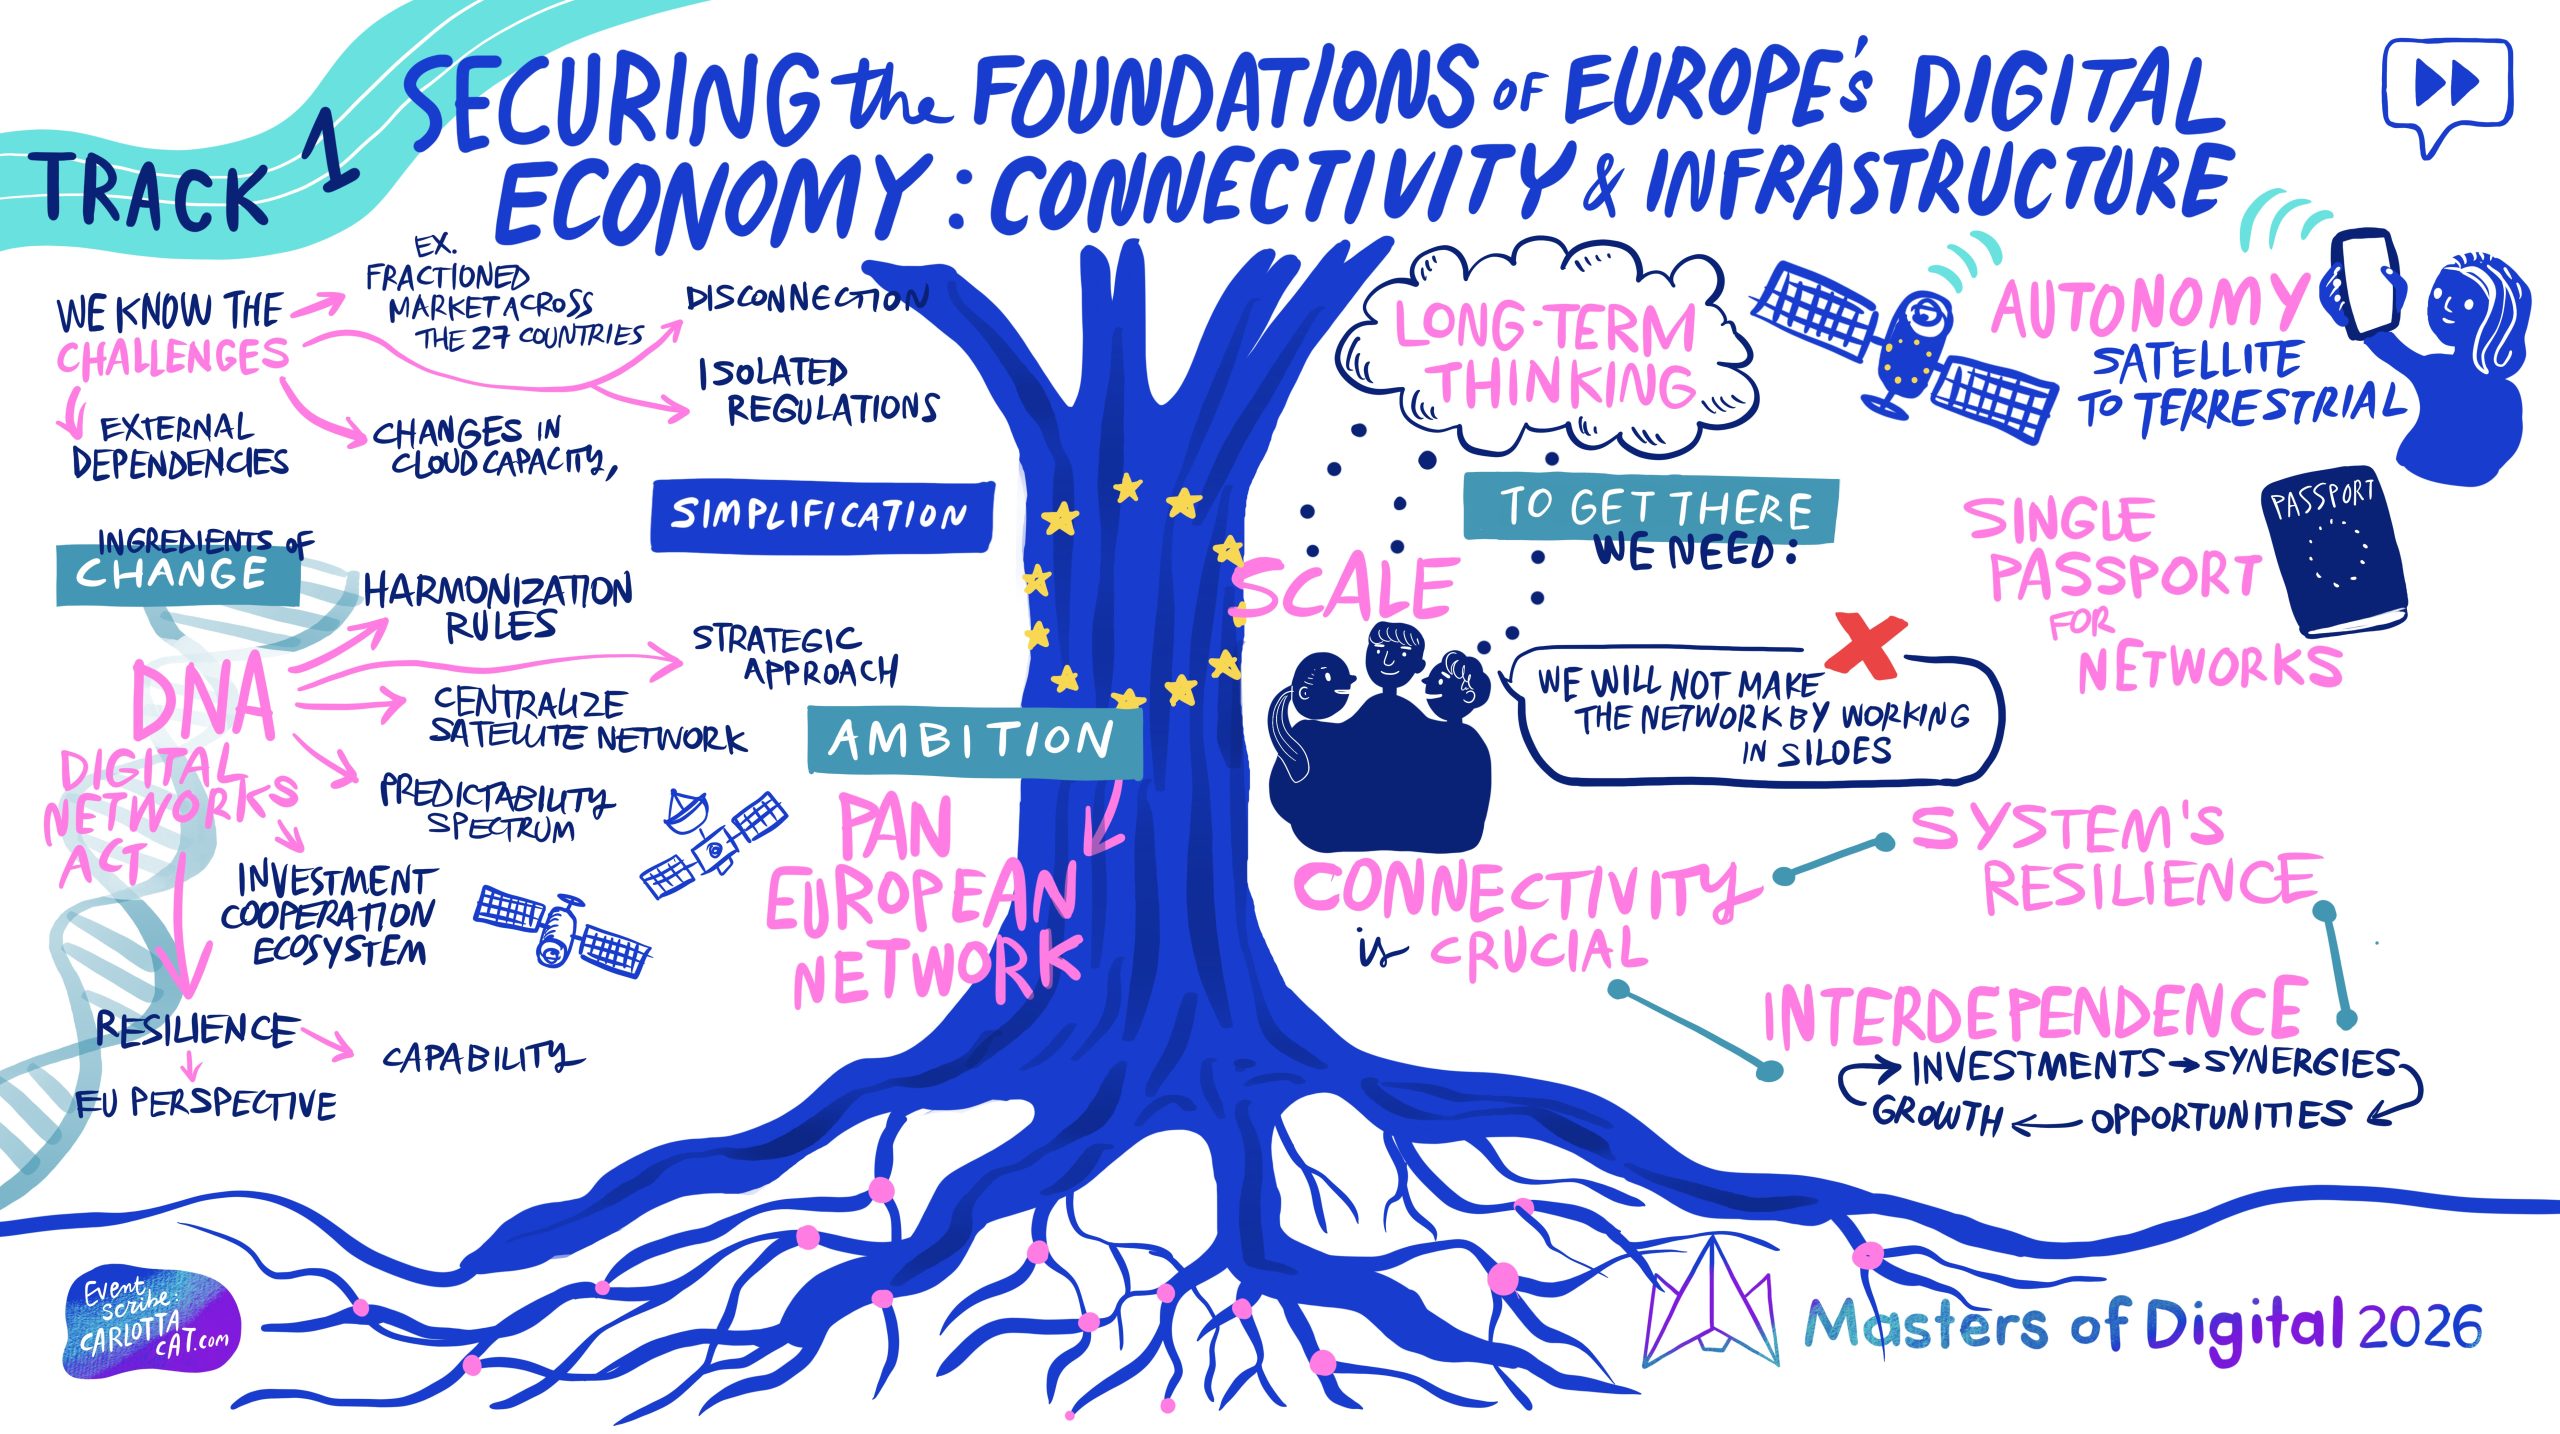 TRACK 1
SECURING the FOUNDATIONS OF EUROPE'S DIGITAL
ECONOMY : CONNECTIVITY & INFRASTRUCTURE
WE KNOW THE
CHALLENGES
EX.
FRACTIONED
MARKET ACROSS
THE 27 COUNTRIES
DISCONNECTION
ISOLATED
REGULATIONS
EXTERNAL
DEPENDENCIES
CHANGES IN
CLOUD CAPACITY,
SIMPLIFICATION
INGREDIENTS OF
CHANGE
DNA
DIGITAL
NETWORKS
ACT
HARMONIZATION
RULES
STRATEGIC
APPROACH
CENTRALIZE
SATELLITE NETWORK
PREDICTABILITY
SPECTRUM
INVESTMENT
COOPERATION
ECOSYSTEM
RESILIENCE
CAPABILITY
EU PERSPECTIVE
AMBITION
PAN
EUROPEAN
NETWORK
LONG-TERM
THINKING
AUTONOMY
SATELLITE
TO TERRESTRIAL
TO GET THERE
WE NEED:
SCALE
SINGLE
PASSPORT
FOR
NETWORKS
PASSPORT
WE WILL NOT MAKE
THE NETWORK BY WORKING
IN SILOES
CONNECTIVITY
is CRUCIAL
SYSTEM'S
RESILIENCE
INTERDEPENDENCE
INVESTMENTS → SYNERGIES
GROWTH ← OPPORTUNITIES
Event
scribe:
CARLOTTA
CAT.com
Masters of Digital 2026